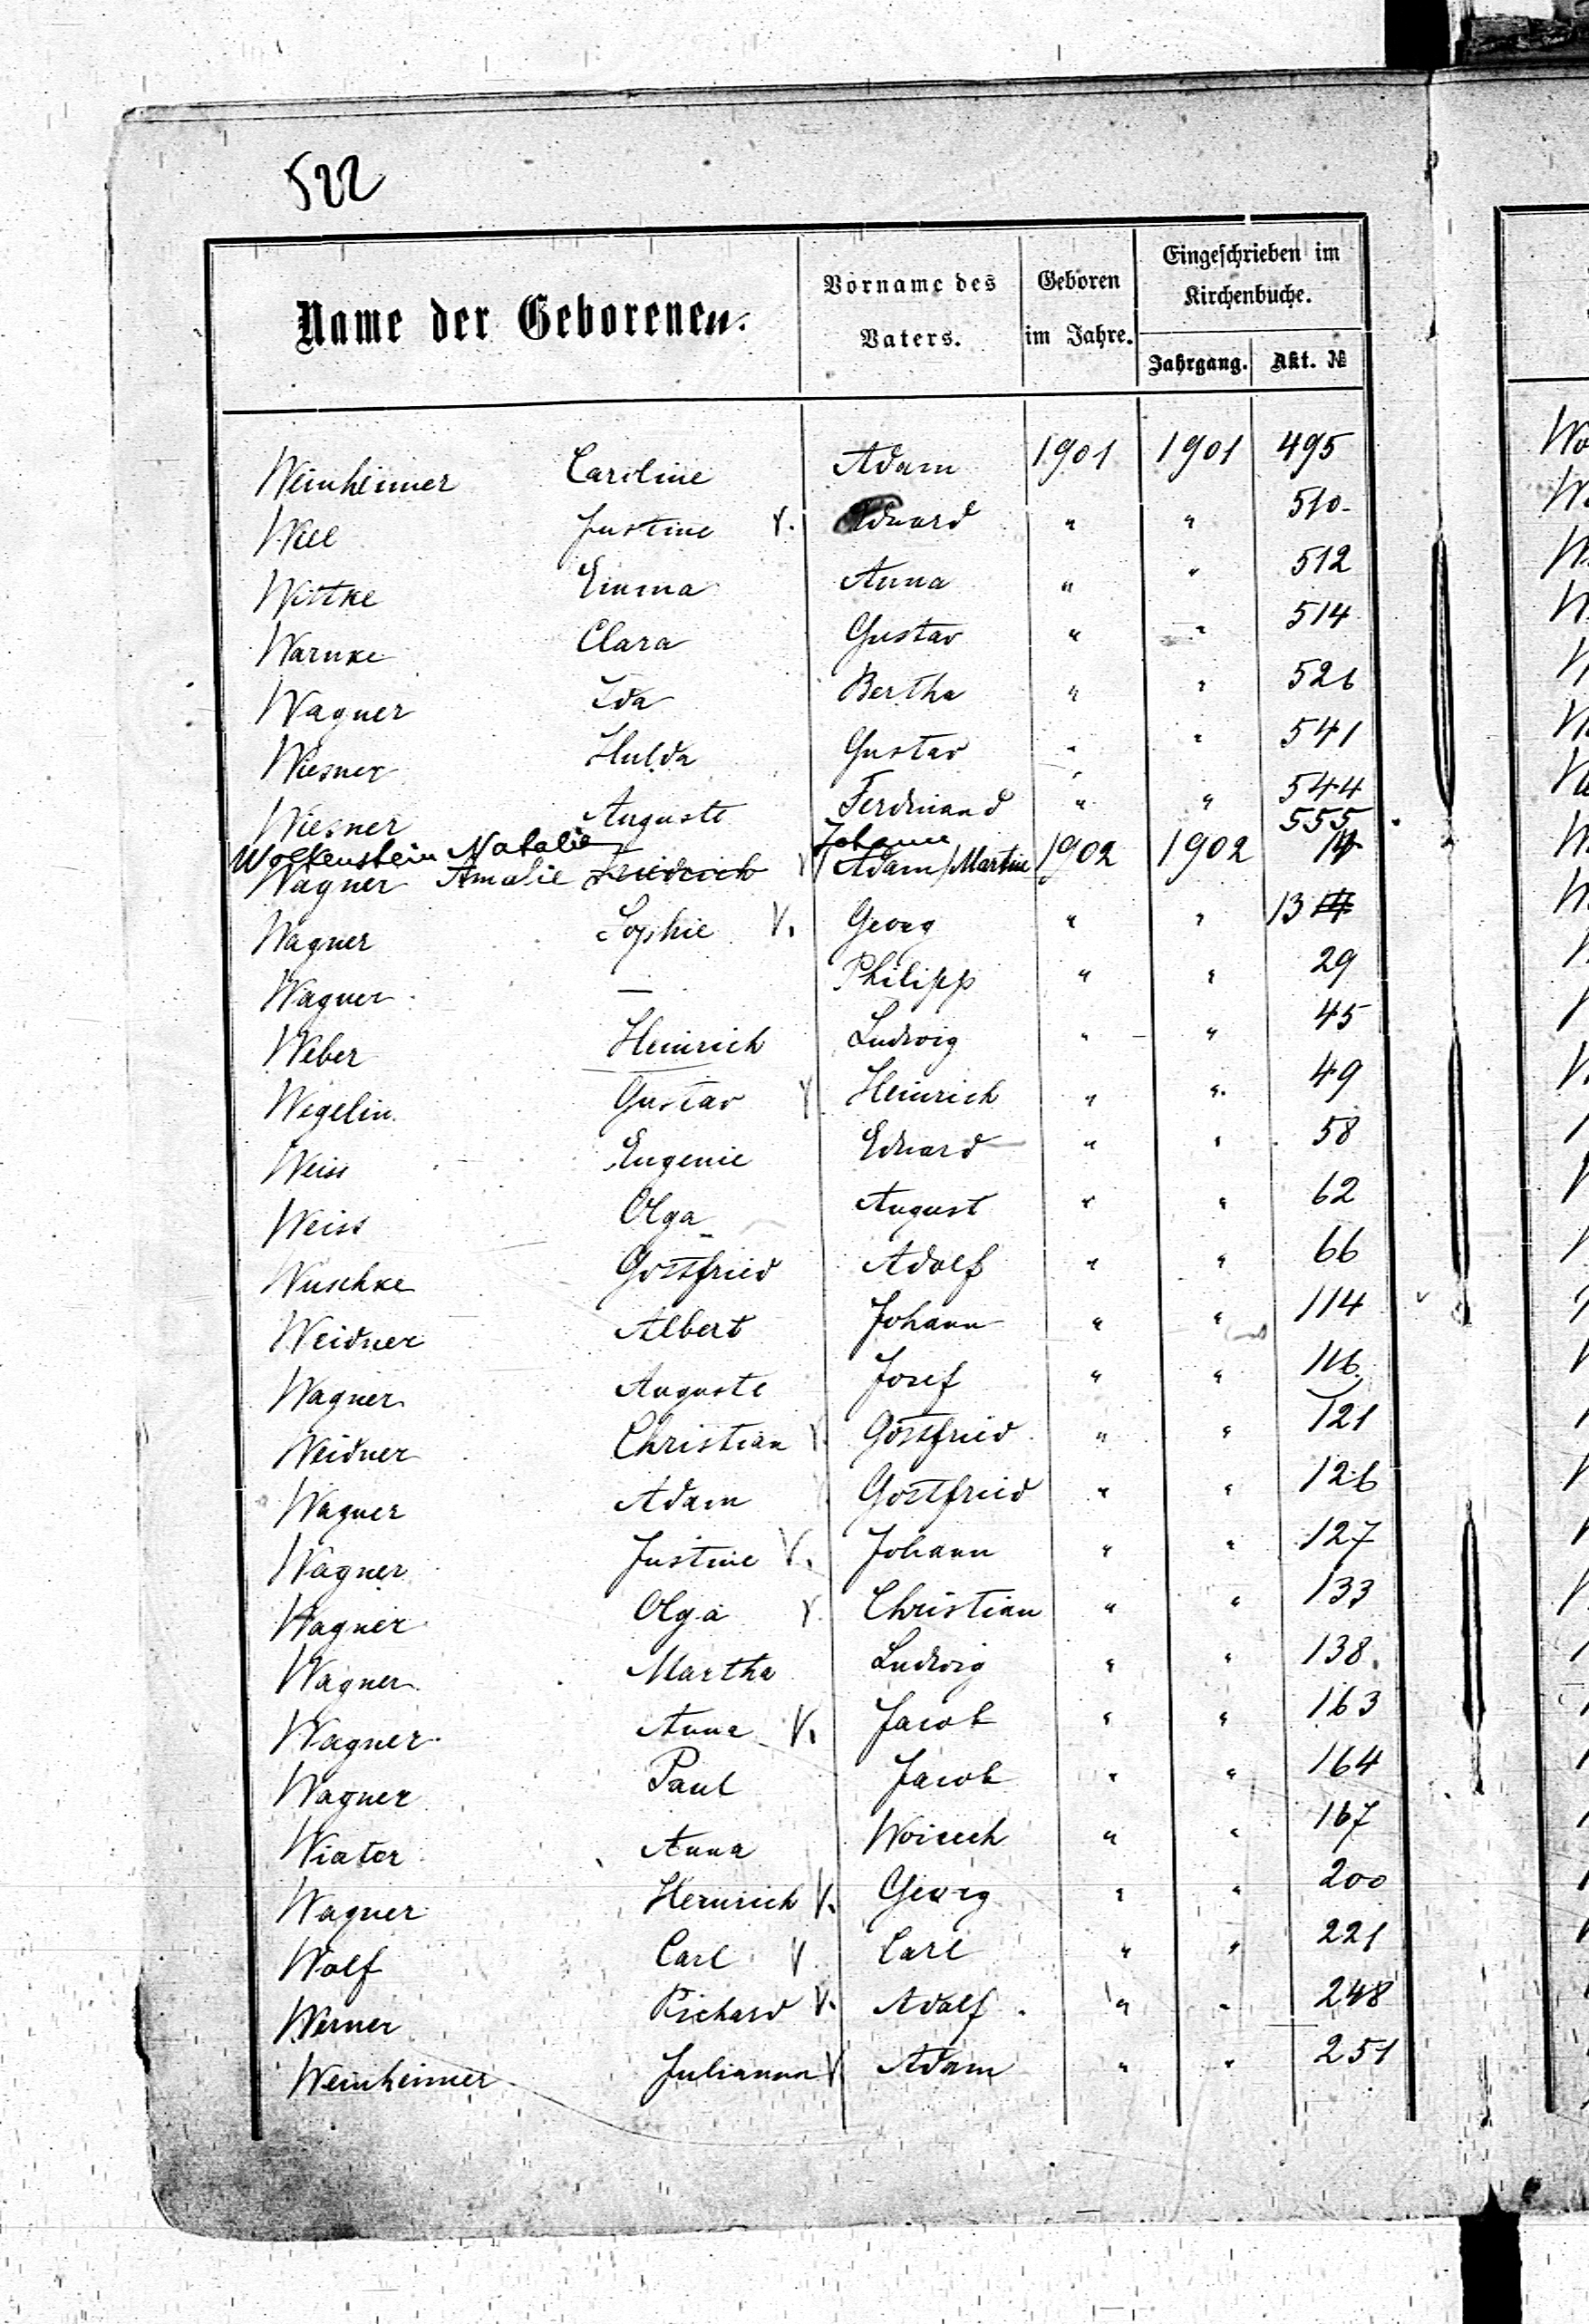 522
Name der Geborenen. Vorname des Vaters. Geboren im Jahre. Eingeschrieben im Kirchenbuche.
Jahrgang. Akt. №
Weinheimer Caroline Adam 1901 1901 495
Will Justine V. Eduard " " 510
Wittke Emma Anna " " 512
Warnke Clara Gustav " " 514
Wagner Ida Bertha " " 526
Wiesner Hulda Gustav " " 541
Wiesner Auguste Ferdinand " " 544
Wolkenstein Natalie Johann 555
Wagner Amalie Friedrich V Adam/Martin 1902 1902 14
Wagner Sophie V. Georg " " 13 14
Wagner — Philipp " " 29
Weber Heinrich Ludwig " " 45
Wegelin Gustav V Heinrich " " 49
Weiss Eugenie Eduard " " 58
Weiss Olga August " " 62
Wuschke Gottfried Adolf " " 66
Weidner Albert Johann " " 114
Wagner Auguste Josef " " 116
Weidner Christian V. Gottfried " " 121
Wagner Adam Gottfried " " 126
Wagner Justine V. Johann " " 127
Wagner Olga V. Christian " " 133
Wagner Martha Ludwig " " 138
Wagner Anna V. Jacob " " 163
Wagner Paul Jacob " " 164
Wiator Anna Woicech " " 167
Wagner Heinrich V. Georg " " 200
Wolf Carl V Carl " " 221
Werner Richard V. Adolf " " 248
Weinheimer Julianna V Adam " " 251